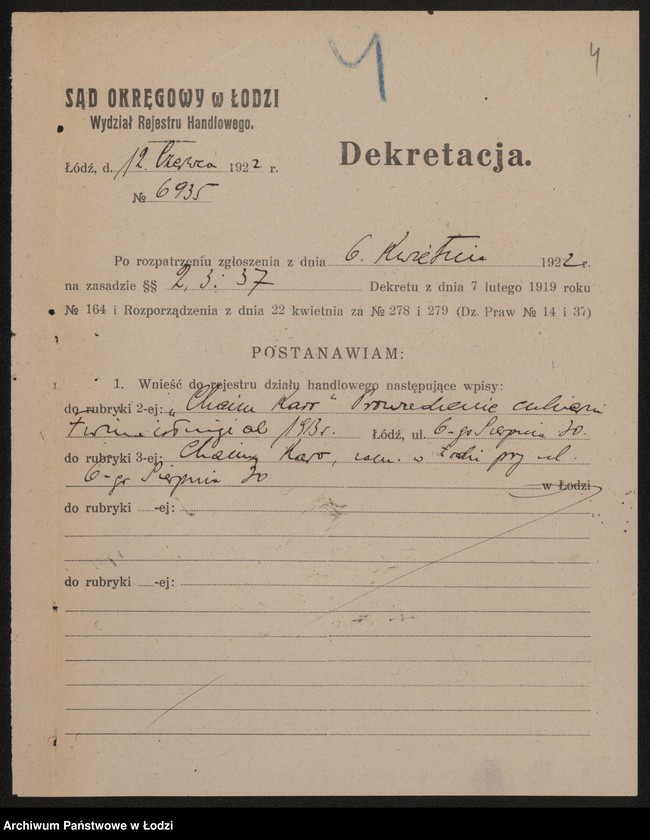 4
4
SĄD OKRĘGOWY w ŁODZI
Wydział Rejestru Handlowego.
Dekretacja.
Łódź, d. 12. Czerwca 1922 r.
№ 6935
Po rozpatrzeniu zgłoszenia z dnia 6. Kwietnia 1922 r.
na zasadzie §§ 2, 3 i 37 Dekretu z dnia 7 lutego 1919 roku
№ 164 i Rozporządzenia z dnia 22 kwietnia za № 278 i 279 (Dz. Praw № 14 i 37)
POSTANAWIAM:
1. Wnieść do rejestru działu handlowego następujące wpisy:
do rubryki 2-ej: „Chaim Karo" Prowadzenie cukierni
Firma istnieje od 1913 r. Łódź, ul. 6-go Sierpnia 30.
do rubryki 3-ej: Chaim Karo, zam. w Łodzi przy ul.
6-go Sierpnia 30 w Łodzi
do rubryki -ej:
do rubryki -ej:
Archiwum Państwowe w Łodzi